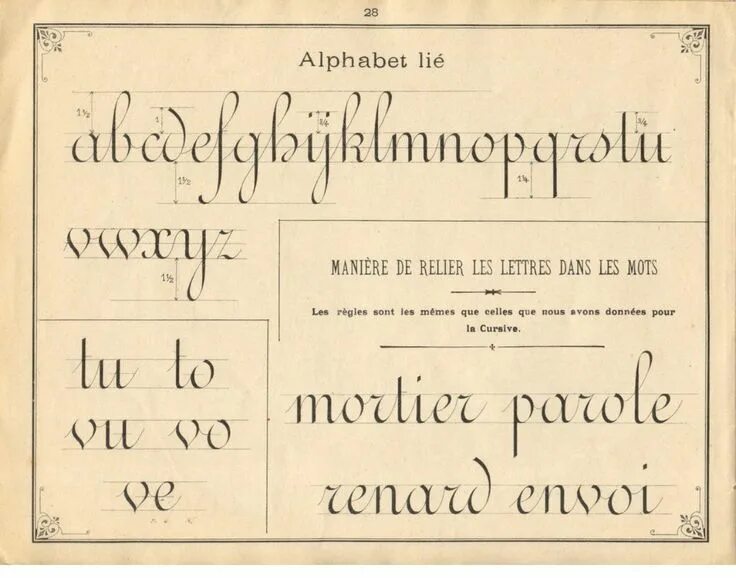 28
Alphabet lié
1½ 1 ¾ ¾
abcdefghijklmnopqrstu
1½ 1¼
vwxyz
1½
MANIÈRE DE RELIER LES LETTRES DANS LES MOTS
Les règles sont les mêmes que celles que nous avons données pour
la Cursive.
tu to
vu vo
ve
mortier parole
renard envoi